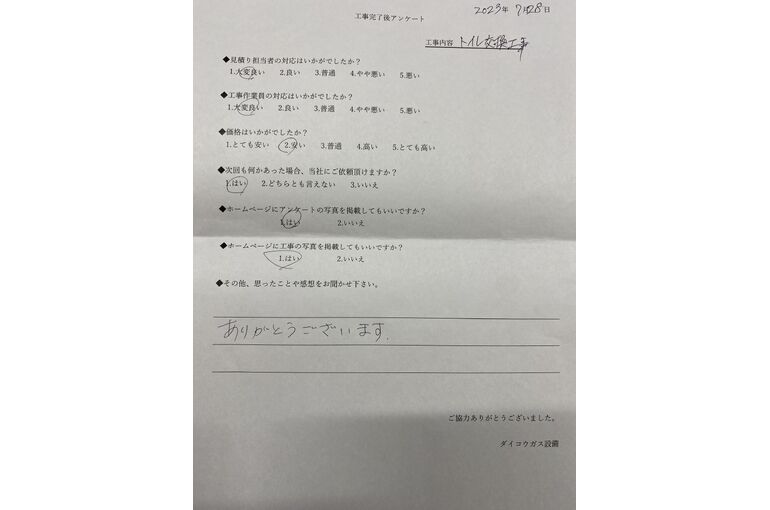 2023年 7月28日
工事完了後アンケート
工事内容 トイレ交換工事
◆見積り担当者の対応はいかがでしたか？
1.大変良い 2.良い 3.普通 4.やや悪い 5.悪い
◆工事作業員の対応はいかがでしたか？
1.大変良い 2.良い 3.普通 4.やや悪い 5.悪い
◆価格はいかがでしたか？
1.とても安い 2.安い 3.普通 4.高い 5.とても高い
◆次回も何かあった場合、当社にご依頼頂けますか？
1.はい 2.どちらとも言えない 3.いいえ
◆ホームページにアンケートの写真を掲載してもいいですか？
1.はい 2.いいえ
◆ホームページに工事の写真を掲載してもいいですか？
1.はい 2.いいえ
◆その他、思ったことや感想をお聞かせ下さい。
ありがとうございます.
ご協力ありがとうございました。
ダイコウガス設備